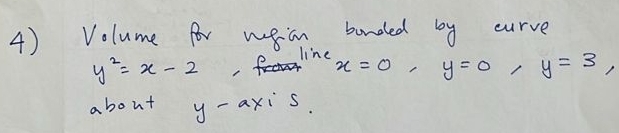 4) Volume for region bonded by curve
y² = x - 2, line x = 0, y = 0, y = 3,
about y-axis.